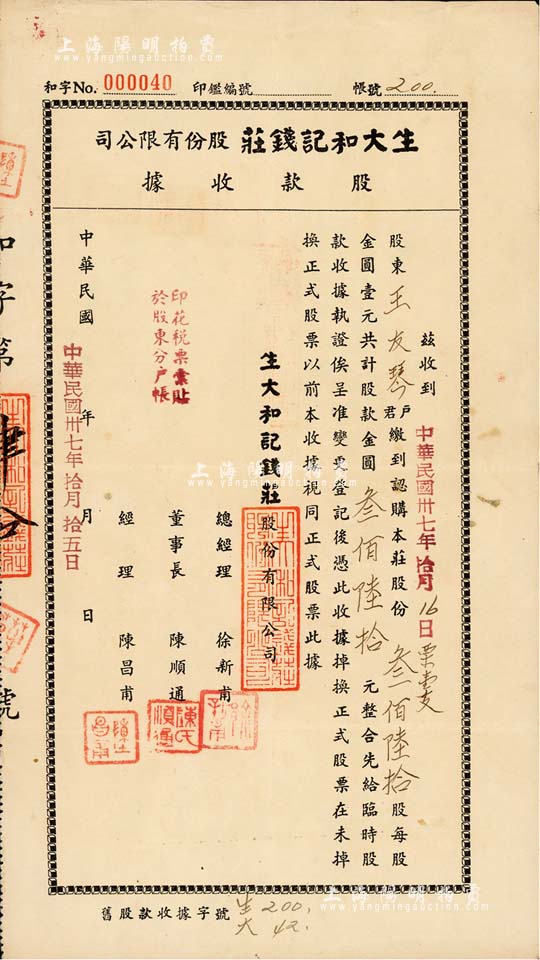 上海陽明拍賣
www.yangmingauction.com
和字No. 000040 印鑑編號 帳號 200.
生大和記錢莊股份有限公司
股款收據
茲收到 中華民國卅七年拾月16日
股東王友琴戶君繳到認購本莊股份叁佰陸拾股每股
金圓壹元共計股款金圓叁佰陸拾元整合先給臨時股
款收據執證俟呈准變更登記後憑此收據掉換正式股票在未掉
換正式股票以前本收據視同正式股票此據
生大和記錢莊股份有限公司
總經理 徐新甫
董事長 陳順通
經理 陳昌甫
陳氏順通
印花稅票彙貼
於股東分戶帳
中華民國 年 月 日
中華民國卅七年拾月拾五日
和字第
號
上海陽明拍賣
www.yangmingauction.com
舊股款收據字號 生200.
大42.
上海陽明拍賣
www.yangmingauction.com